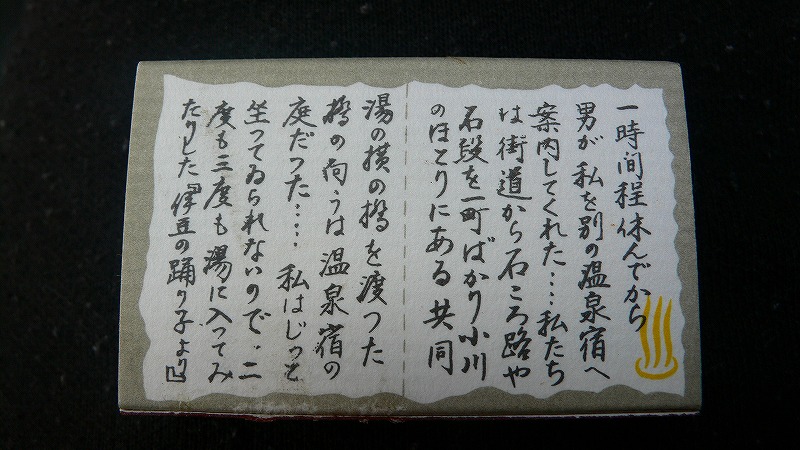 一時間程休んでから
男が私を別の温泉宿へ
案内してくれた‥‥私たち
は街道から石ころ路や
石段を一町ばかり小川
のほとりにある共同
湯の横の橋を渡った
橋の向うは温泉宿の
庭だった‥‥私はじっと
坐ってゐられないので、二
度も三度も湯に入ってみ
たりした『伊豆の踊り子より』